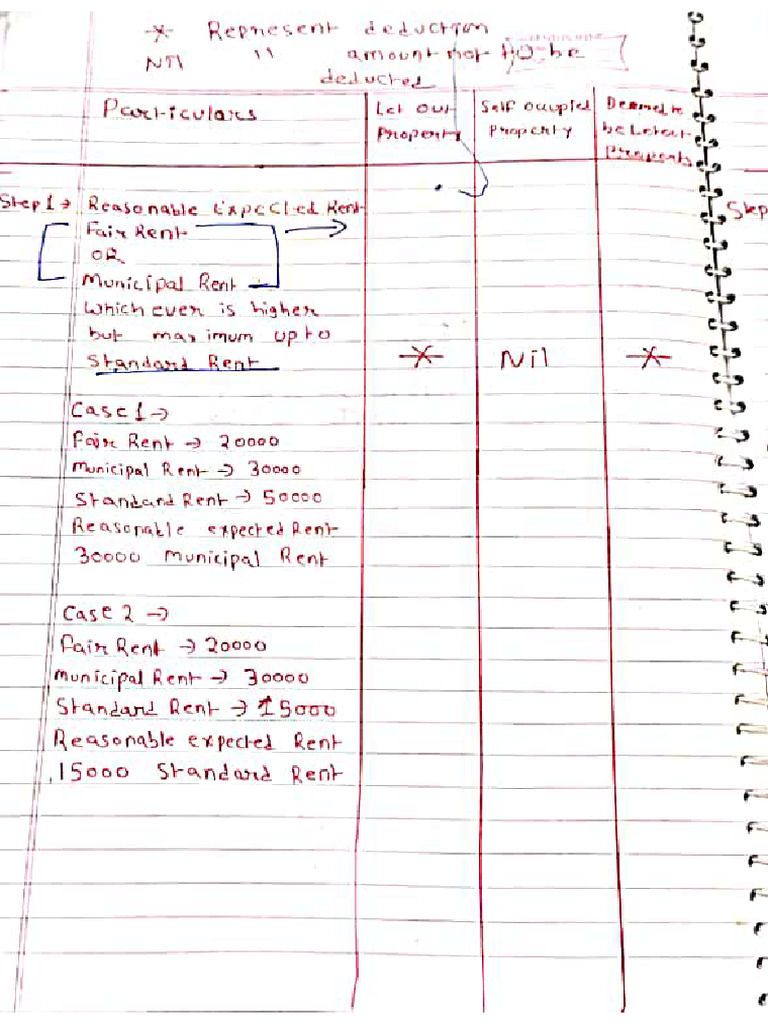 -*- Represent deduction
Nil " amount not to be
deducted
Particulars
Let Out Property
Self Occupied Property
Deemed to be Letout Property
Step 1 → Reasonable Expected Rent
Fair Rent
OR
Municipal Rent
Which ever is higher
but maximum upto
Standard Rent
-*- Nil -*-
Case 1 →
Fair Rent → 20000
Municipal Rent → 30000
Standard Rent → 50000
Reasonable expected Rent
30000 Municipal Rent
Case 2 →
Fair Rent → 20000
Municipal Rent → 30000
Standard Rent → 15000
Reasonable expected Rent
15000 Standard Rent
Step